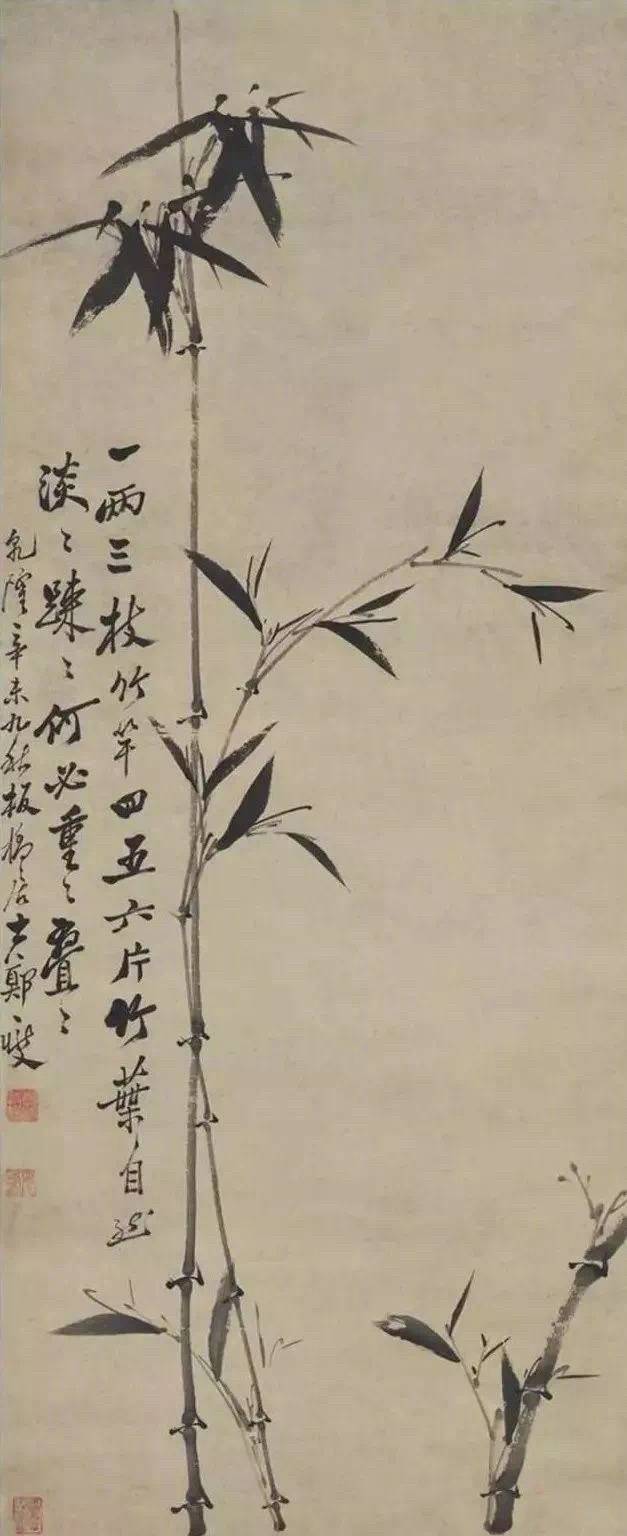 一兩三枝竹竿四五六片竹葉自然
淡〻踈〻何必重〻疊〻
乾隆辛未九秋板橋居士鄭燮